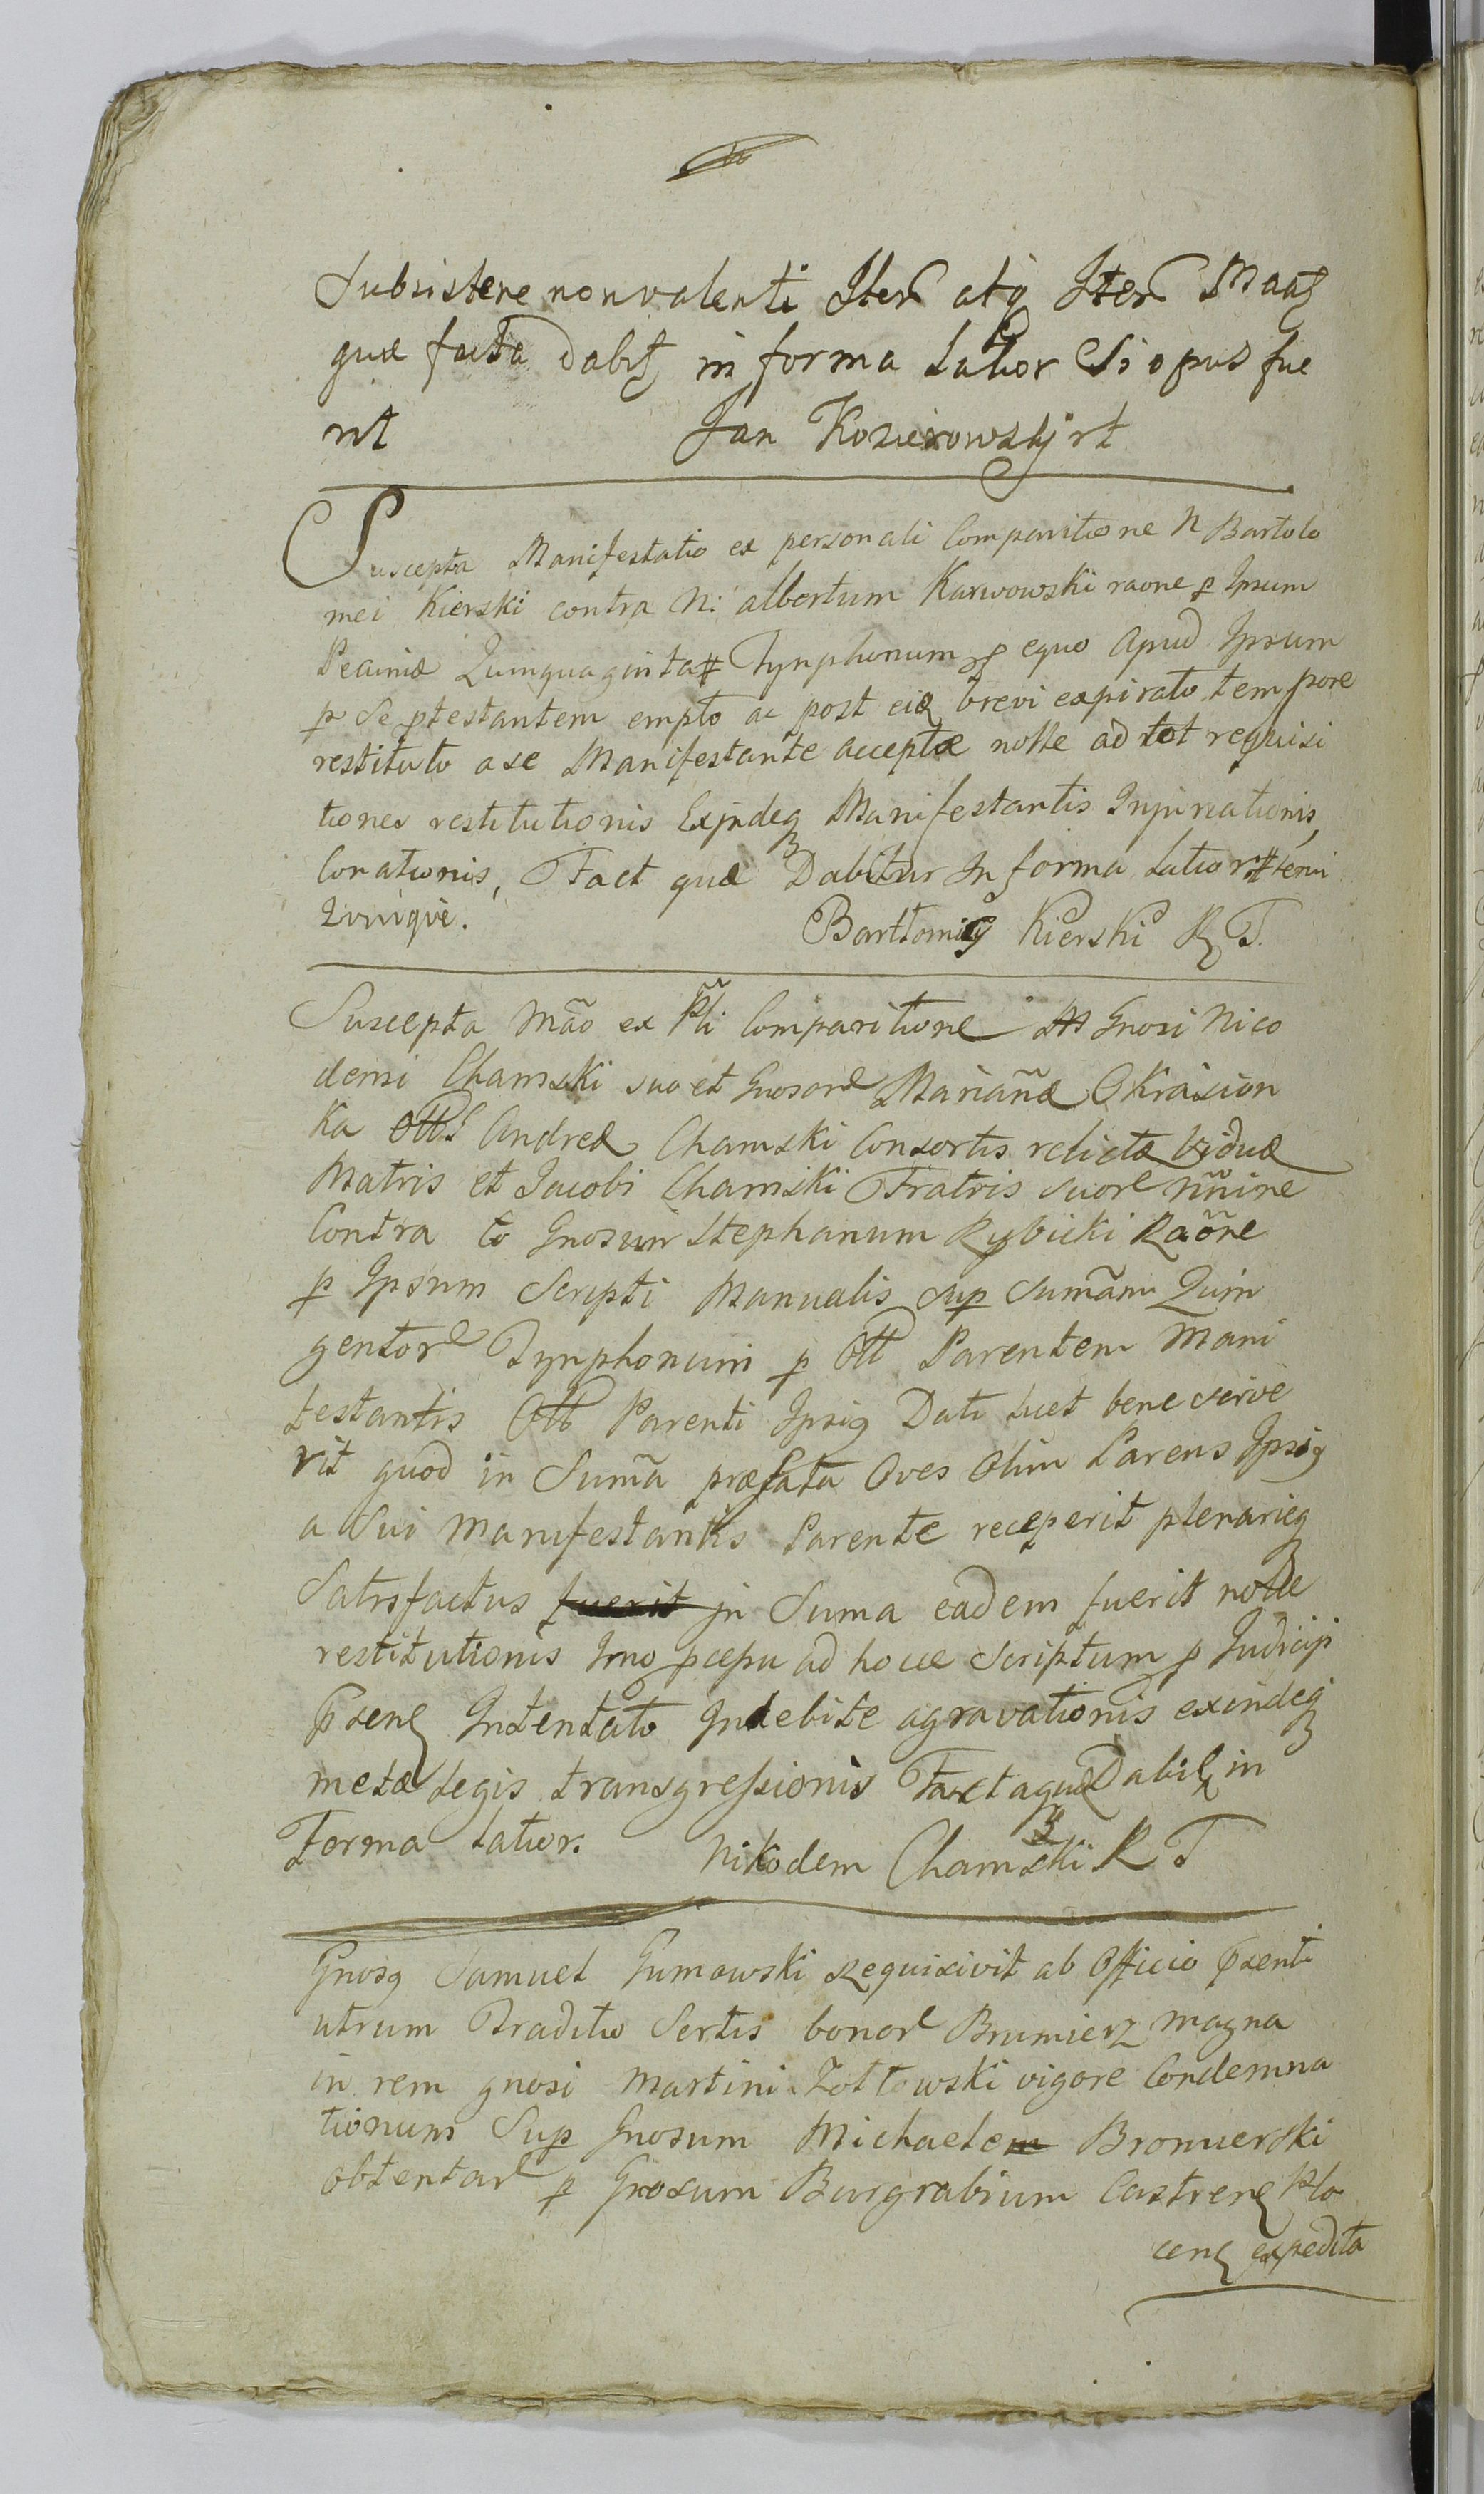 Subsistere non valenti Iter atq Iter Maaʒ
quæ facta Dabiʒ in forma Latior Si opus fue
rit Jan Kozierowskj rt
Suscepta Manifestatio ex personali Comparitione N Bartolo
mei Kierski contra N: albertum Karwowski raone p Ipsum
Pecuniæ Quinquaginta # Tynphonum p equo apud Ipsum
p Se ptestantem empto ac post eiq brevi expirato tempore
restituto a se Manifestante acceptæ nolle ad tot requisi
tiones restitutionis Exjndeq Manifestantis Injuriationis,
Conationis, Fact quæ Dabitur In forma Latiori # temi
Quiqve.
Bartłomiy Kierski R T.
Suscepta Mão ex Pli Comparitione Gnosi Nico
demi Chamski suo et Gnosor Mariañæ Okrasion
ka Ott Andreæ Chamski Consortis relictæ Viduæ
Matris et Jacobi Chamski Fratris suor nñine
Contra Gnosum Stephanum Rybicki Raõne
p Ipsum Scripti Manualis sup sumãm Quin
gentor Tynphonum p Ott Parentem Mani
festantis Ott Parenti Ipsig Dati licet bene scive
rit quod in Sumã præfata Oves Olim Parens Ipsig
a Sui Manifestantis Parente receperit plenarieq
Satisfactus fuerit jn Suma eadem fuerit nolle
restitutionis Imo ad hocce Scriptum p Judicij
pzens Intentato Indebite agravationis exindeq
metæ Legis transgressionis Factaquæ Dabiʒ in
Forma Latior. Nikodem Chamski R T
Gnosg Samuel Gumowski Requisivit ab Officio pzenti
utrum Traditio Sortis bonor Brumierz magna
in rem gnosi Martini Zołtowski vigore Condemna
tionum Sup Gnosum Michaelem Bromierski
obtentar p Gnosum Burgrabium Castrens Plo
cens expedita